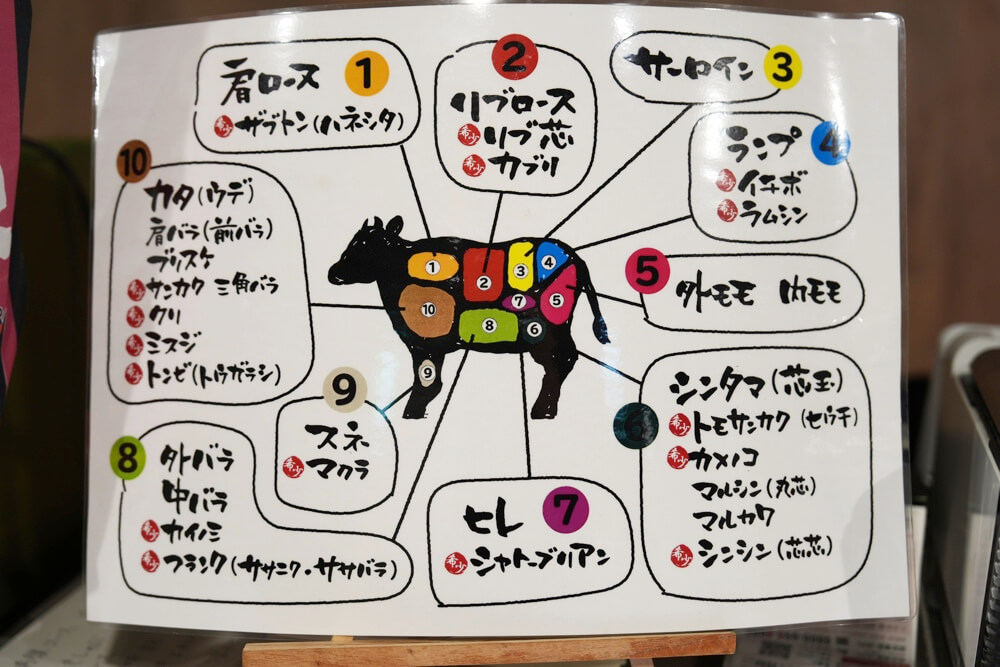 肩ロース 1
希少 ザブトン(ハネシタ)
2
リブロース
希少 リブ芯
希少 カブリ
サーロイン 3
ランプ 4
希少 イチボ
希少 ラムシン
5 外モモ 内モモ
6
シンタマ(芯玉)
希少 トモサンカク(ヒウチ)
希少 カメノコ
マルシン(丸芯)
マルカワ
希少 シンシン(芯芯)
7
ヒレ
希少 シャトーブリアン
8
外バラ
中バラ
希少 カイノミ
希少 フランク(ササニク・ササバラ)
9
スネ
希少 マクラ
10
カタ(ウデ)
肩バラ(前バラ)
ブリスケ
希少 サンカク 三角バラ
希少 クリ
希少 ミスジ
希少 トンビ(トウガラシ)
1
2
3
4
5
6
7
8
9
10